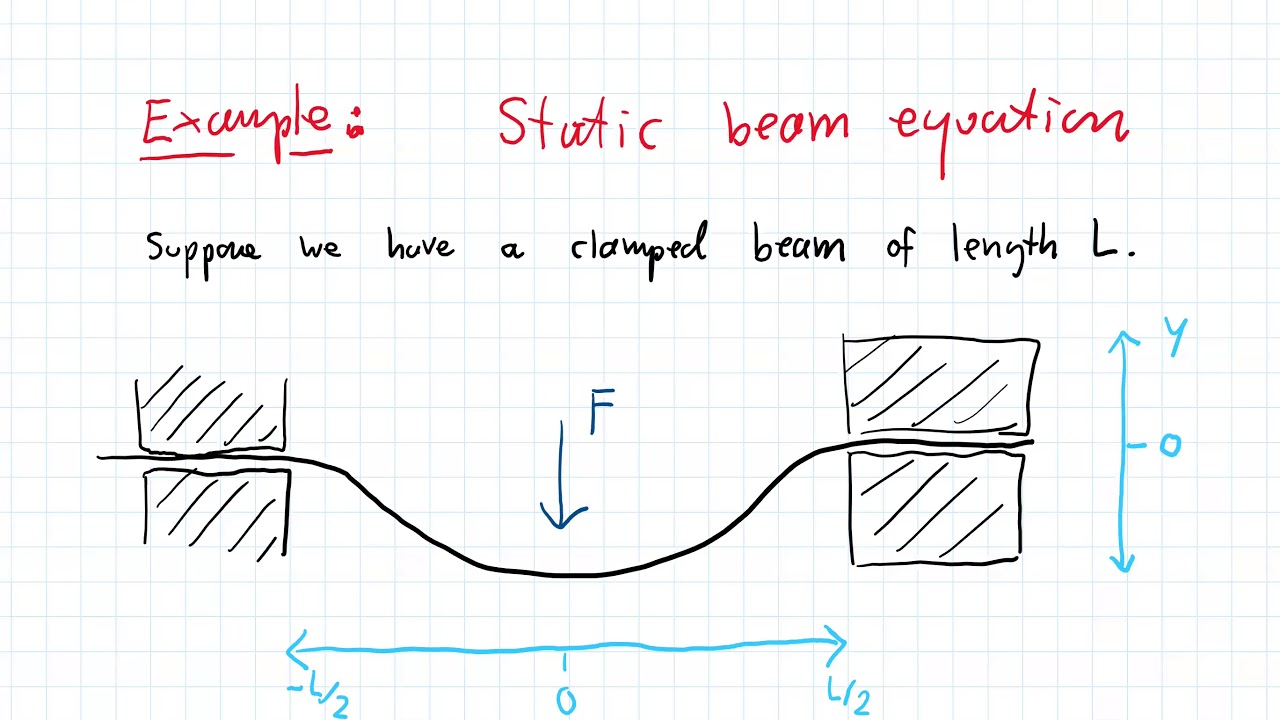 Example: Static beam equation
Suppose we have a clamped beam of length L.
Y
F
0
-L/2
0
L/2